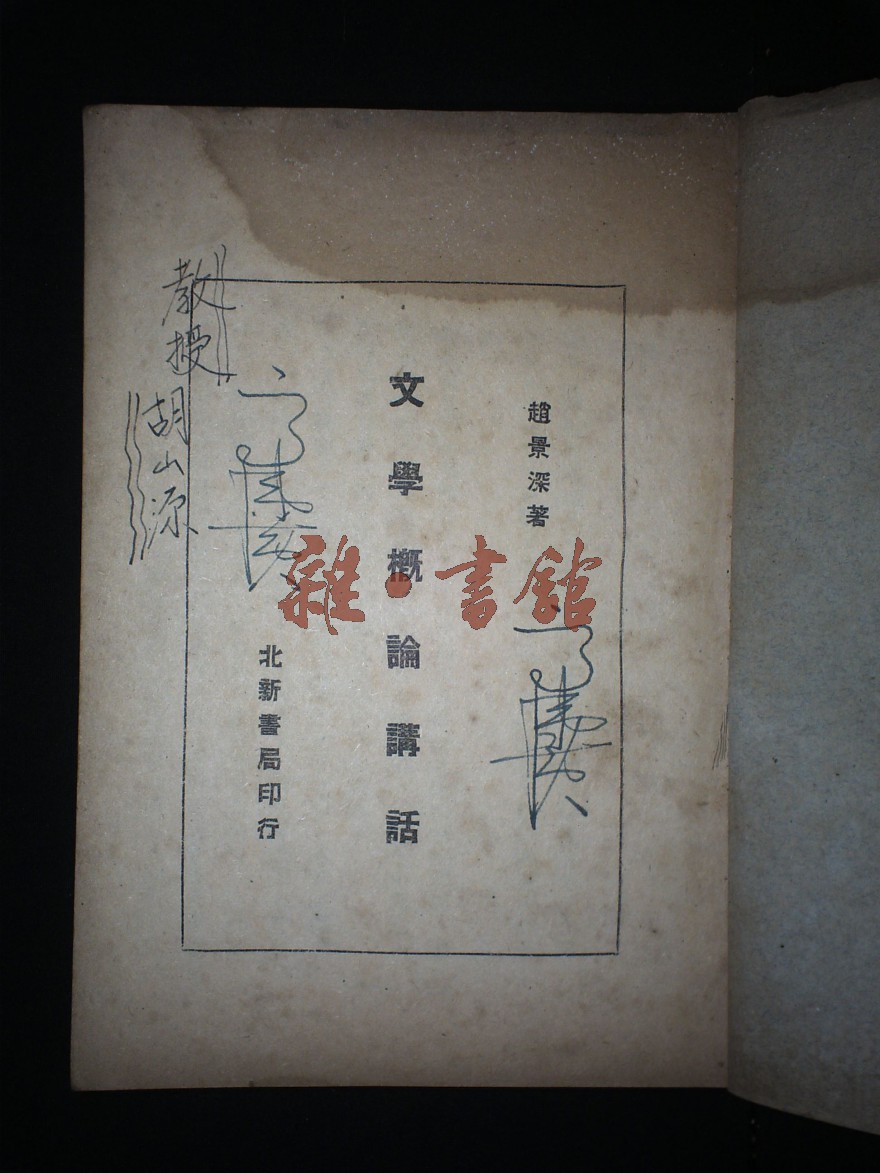 趙景深著
文學概論講話
北新書局印行
教授
胡山源
雜·書館